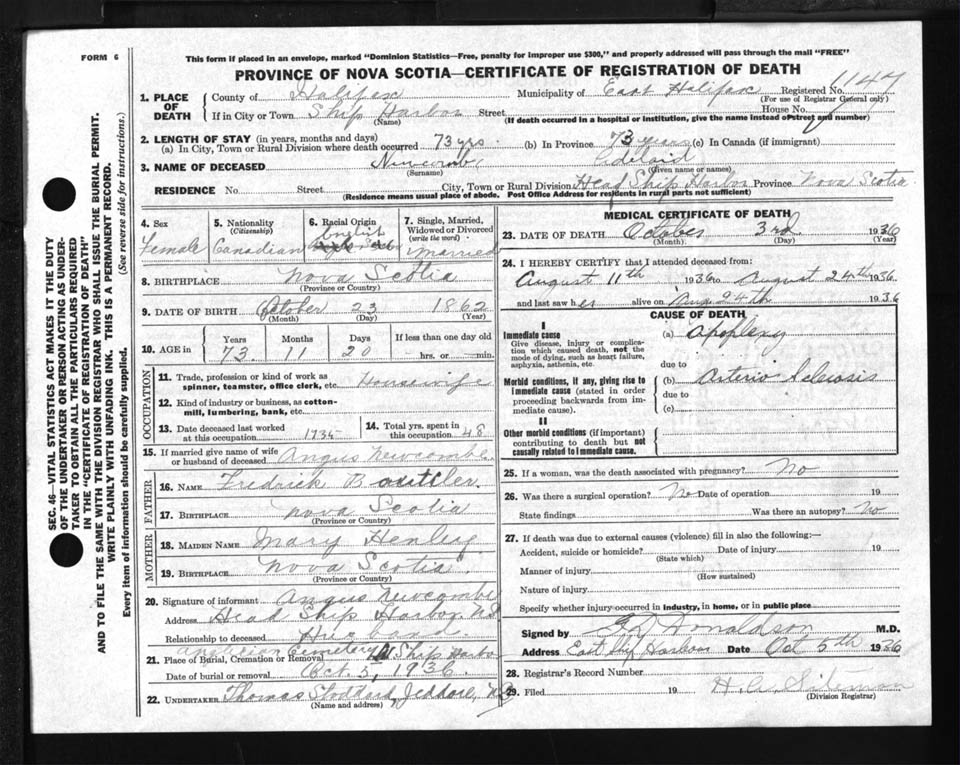 FORM 6
This form if placed in an envelope, marked "Dominion Statistics—Free, penalty for improper use $300," and properly addressed will pass through the mail "FREE"
PROVINCE OF NOVA SCOTIA—CERTIFICATE OF REGISTRATION OF DEATH
1. PLACE OF DEATH
County of Halifax Municipality of East Halifax Registered No. 1147
(For use of Registrar General only)
If in City or Town Ship Harbor Street House No.
(Name) (If death occurred in a hospital or institution, give the name instead of street and number)
2. LENGTH OF STAY (in years, months and days)
(a) In City, Town or Rural Division where death occurred 73 yrs. (b) In Province 73 years (c) In Canada (if immigrant)
3. NAME OF DECEASED Newcombe Adelaid
(Surname) (Given name or names)
RESIDENCE No. Street City, Town or Rural Division Head Ship Harbor Province Nova Scotia
(Residence means usual place of abode. Post Office Address for residents in rural parts not sufficient)
4. Sex
Female
5. Nationality
(Citizenship)
Canadian
6. Racial Origin
English
7. Single, Married, Widowed or Divorced
(write the word)
Married
8. BIRTHPLACE Nova Scotia
(Province or Country)
9. DATE OF BIRTH October 23 1862
(Month) (Day) (Year)
10. AGE in Years Months Days If less than one day old
73 11 20 hrs. or min.
OCCUPATION
11. Trade, profession or kind of work as spinner, teamster, office clerk, etc. Housewife
12. Kind of industry or business, as cotton-mill, lumbering, bank, etc.
13. Date deceased last worked at this occupation 1935
14. Total yrs. spent in this occupation 48
15. If married give name of wife or husband of deceased Angus Newcombe
FATHER
16. NAME Fredrick
17. BIRTHPLACE Nova Scotia
(Province or Country)
MOTHER
18. MAIDEN NAME Mary Henley
19. BIRTHPLACE Nova Scotia
(Province or Country)
20. Signature of informant Angus Newcombe
Address Head Ship Harbor N S
Relationship to deceased Husband
21. Place of Burial, Cremation or Removal Anglician Cemetery Ship Harbor
Date of burial or removal Oct. 5, 1936
22. UNDERTAKER Thomas Stoddard, Jeddore, N S
(Name and address)
MEDICAL CERTIFICATE OF DEATH
23. DATE OF DEATH October 3rd 1936
(Month) (Day) (Year)
24. I HEREBY CERTIFY that I attended deceased from:
August 11th 1936 to August 24th 1936
and last saw her alive on Aug 24th 1936
CAUSE OF DEATH
I
Immediate cause
Give disease, injury or complication which caused death, not the mode of dying, such as heart failure, asphyxia, asthenia, etc.
(a) Apoplexy
due to
Morbid conditions, if any, giving rise to immediate cause (stated in order proceeding backwards from immediate cause).
(b) Arterio Sclerosis
due to
(c)
II
Other morbid conditions (if important) contributing to death but not causally related to immediate cause.
25. If a woman, was the death associated with pregnancy? No
26. Was there a surgical operation? No Date of operation 19
State findings Was there an autopsy? No
27. If death was due to external causes (violence) fill in also the following:—
Accident, suicide or homicide? Date of injury 19
(State which)
Manner of injury
(How sustained)
Nature of injury
Specify whether injury occurred in industry, in home, or in public place
Signed by Donaldson M.D.
Address East Ship Harbour Date Oct 5th 1936
28. Registrar's Record Number
29. Filed 19
(Division Registrar)
SEC. 46—VITAL STATISTICS ACT MAKES IT THE DUTY
OF THE UNDERTAKER OR PERSON ACTING AS UNDER-
TAKER TO OBTAIN ALL THE PARTICULARS REQUIRED
IN THE "CERTIFICATE OF REGISTRATION OF DEATH"
AND TO FILE THE SAME WITH THE DIVISION REGISTRAR WHO SHALL ISSUE THE BURIAL PERMIT.
WRITE PLAINLY WITH UNFADING INK. THIS IS A PERMANENT RECORD.
Every item of information should be carefully supplied. (See reverse side for instructions.)